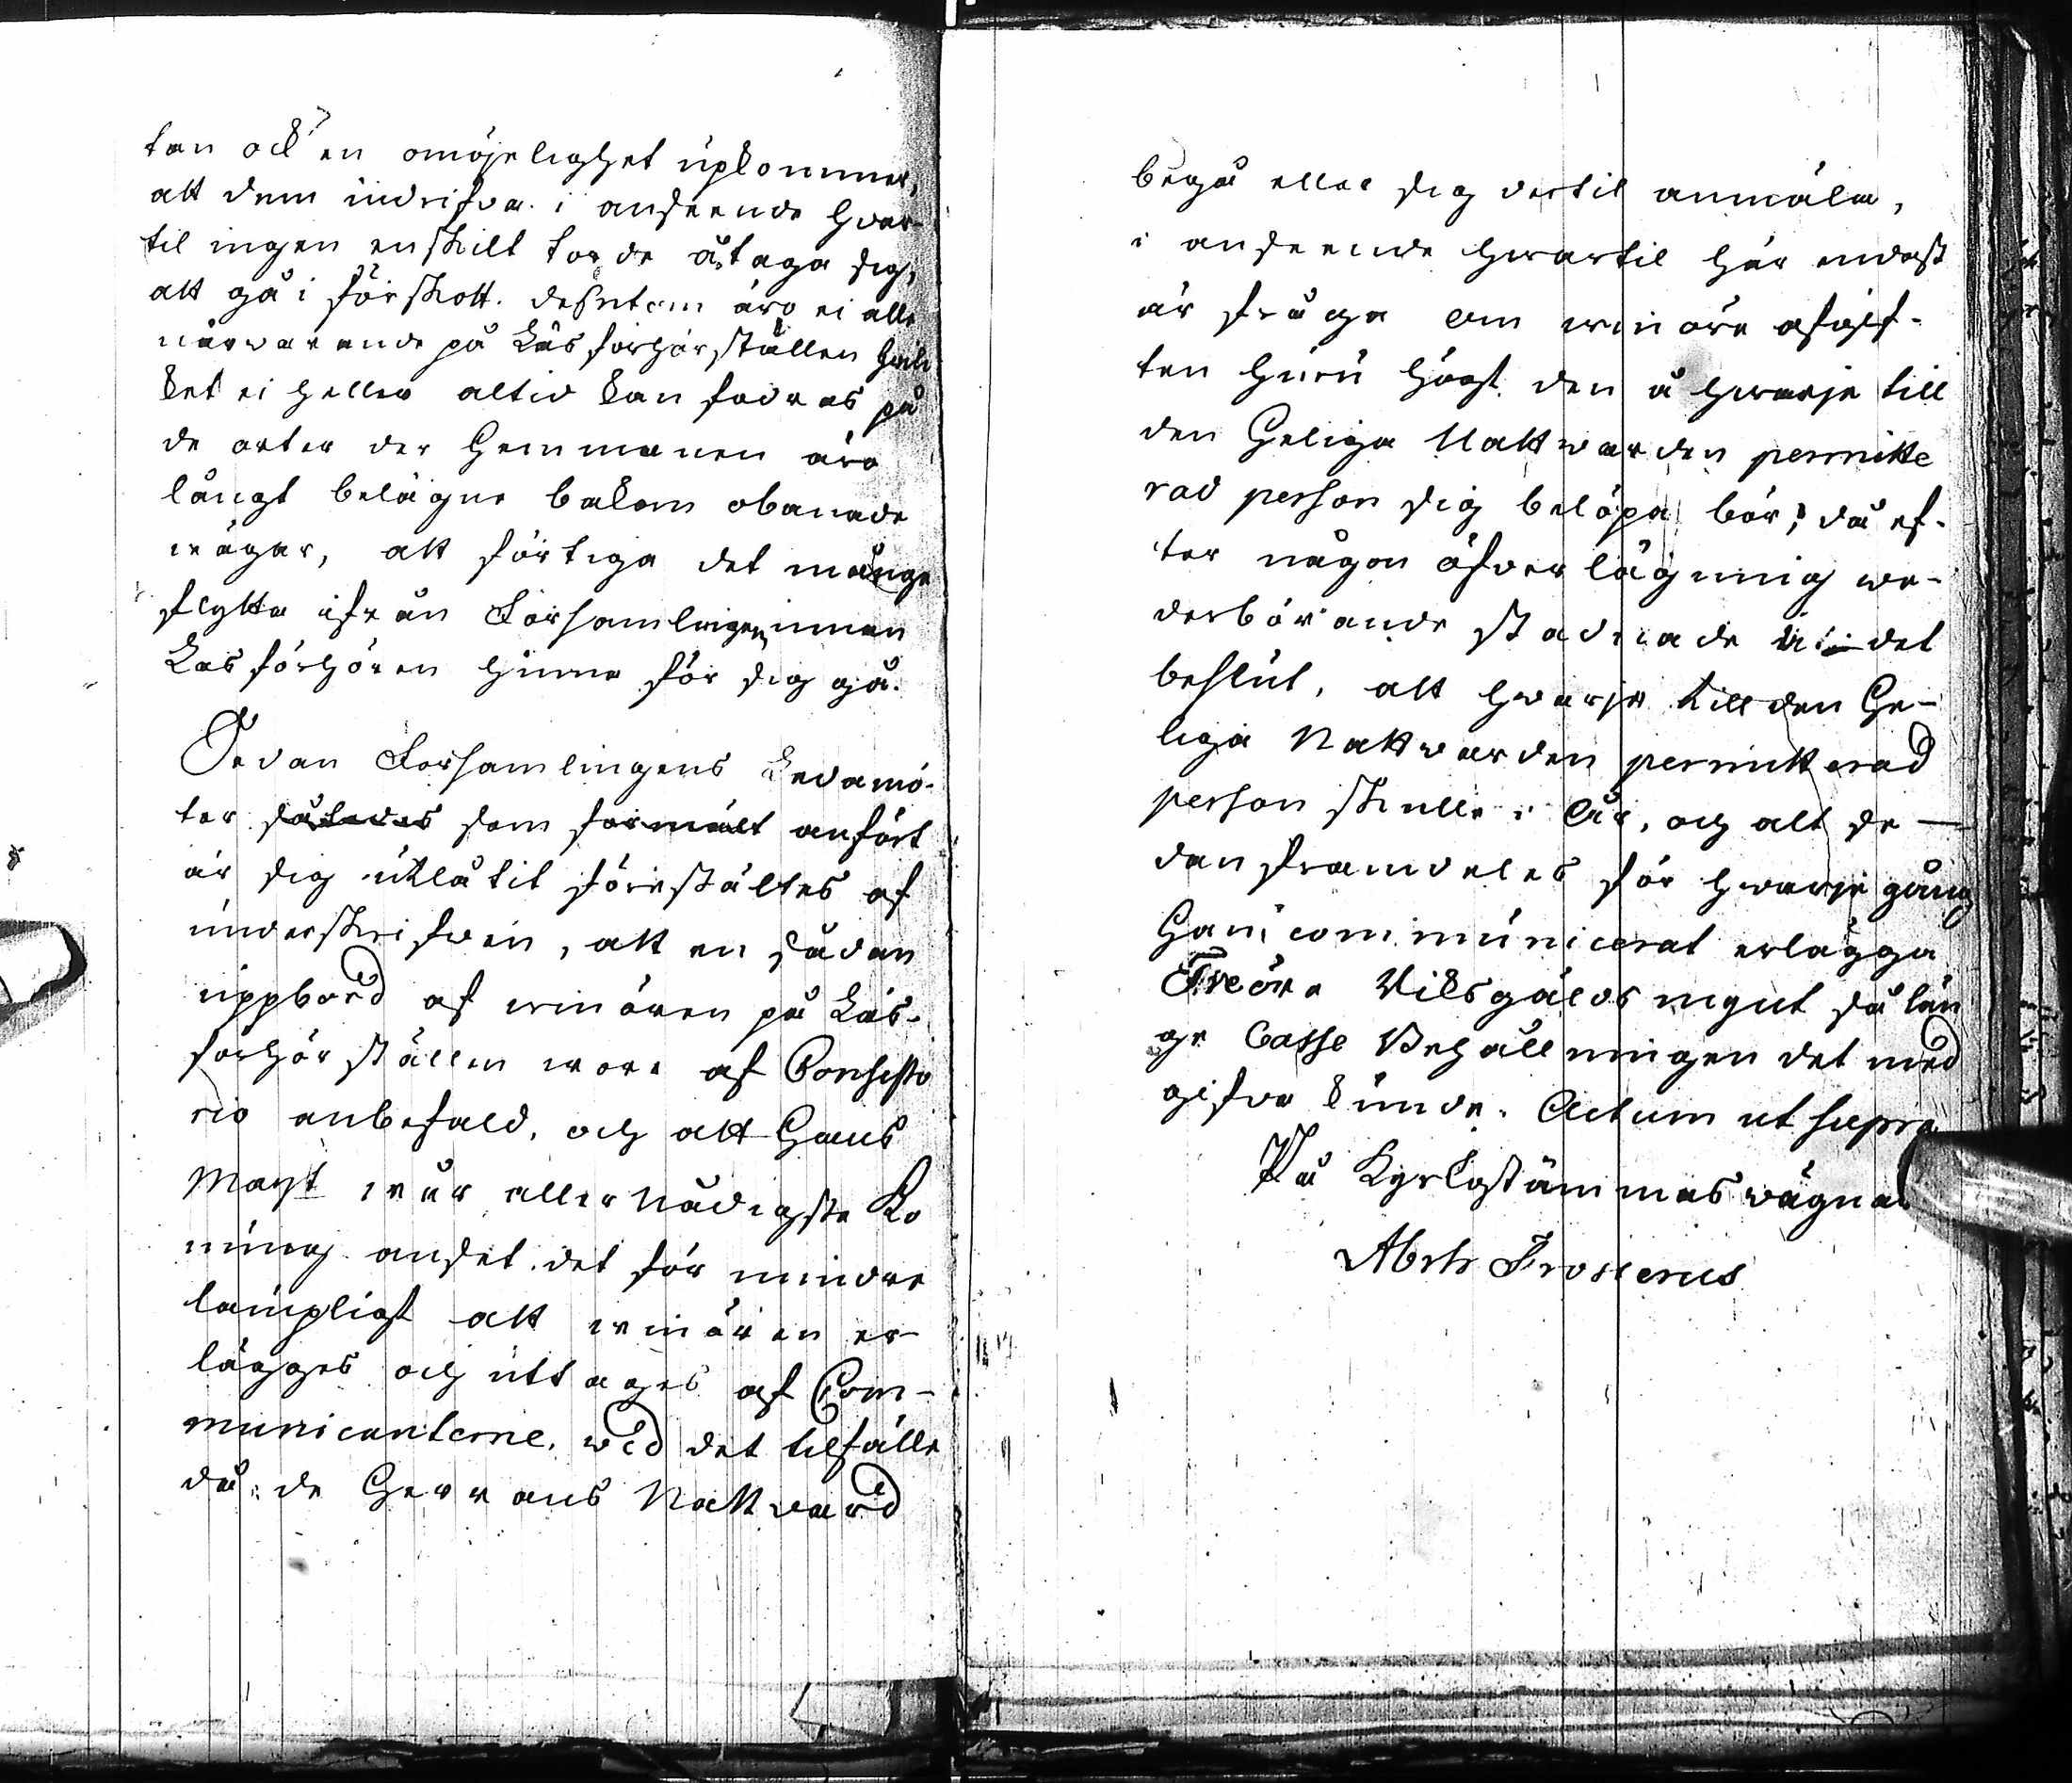 tan ock en omöjelighet upkommer,
att dem indrifva i anseende hvar-
til ingen enskilt torde åtaga sig,
att gå i förskott. desutom äro ei alle
närvarande på Läsförhörställen hvil
ket ei heller altid kan fodras på
de orter der Hemmanen äro
långt belägne bakom obanade
wägar, att förtiga det månge
flytta ifrån Församlingen innan
Läsförhören hinna för sig gå.
Sedan Församlingens Ledamö-
ter således som förmält anfört
är sig utlåtit föreställtes af
underskrifven, att en sådan
uppbörd af winören på Läs-
förhörställen wore af Consisto
rio anbefald, och att Hans
Mayt wår allernådigste Ko
nung anset det för mindre
lämpligt att winören er-
lägges och uttages af Com-
municanterne, wid det tilfälle
då de Herrans Nattvard
begå eller sig dertil anmäla,
i anseende hwartil här endast
är fråga om winöre afgif-
ten huru högt den å hwarje till
den Heliga Nattwarden permitte
rad person sig belöpa bör; då ef-
ter någon öfverläggning we-
derbörande stadnade i det
beslut, att hwarje till den He-
liga Nattwarden permitterad
person skulle i år, och alt se-
dan framdeles för hwarje gång
Han communicerat erlägga
Tre öre Riksgälds mynt så län
ge Casse Behållningen det med
gifva kunde. Actum ut supra
På Kyrkostämmas vägnar
Abrh Frosterus